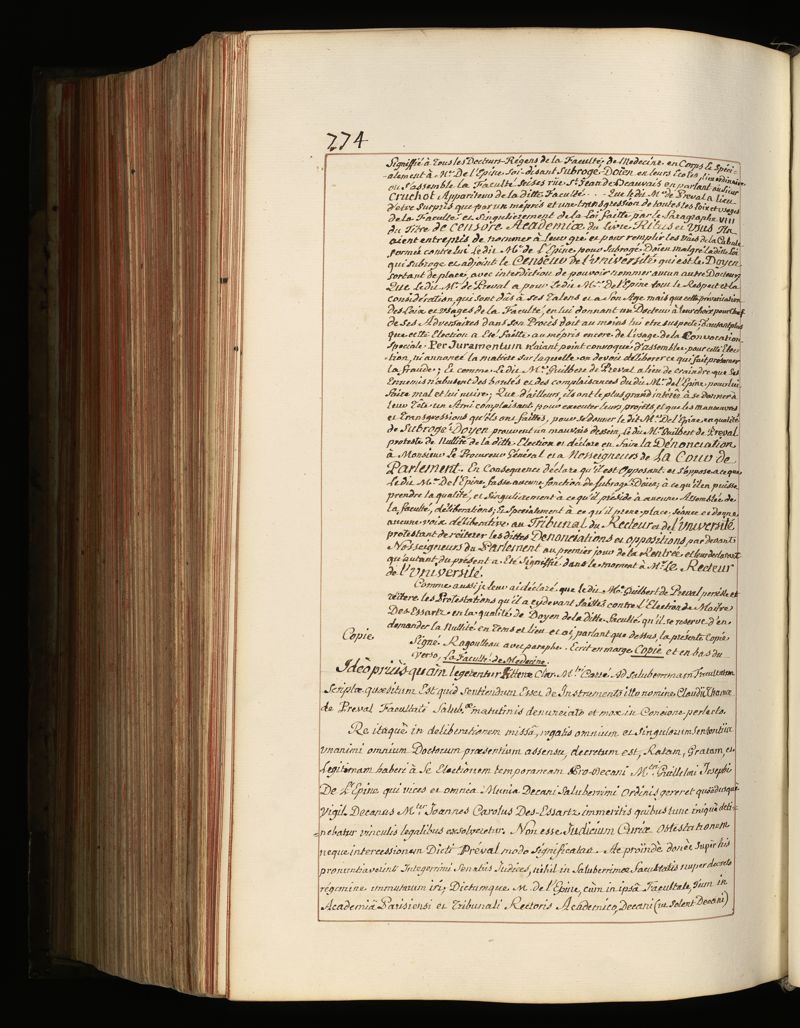 774
Signiffié à Tous les Docteurs-Régens de la Faculté de Medecine en Corps Et Spéci-
-alement à Mr. De l'Epine Soi-disant Subrogé-Doïen en leurs écoles, lieu ordinaire
où S'assemble la Faculté Sises rüe St. Jean de Beauvais en parlant au Sieur
Cruchot Appariteur de la ditte Faculté . . . Que le dit Mr. de Preval a lieu
d'etre Surpris que par un mépris et une transgression de toutes les loix et usages
de la Faculté et Singulierement de la loi faitte par le Paragraphe VIII
du Titre de censore Academiæ du livre Ritus et Usus Ils
aient entrepris de nommer à leur gré et pour remplir les Vües de la Cabale
formée contre lui Le dit Mr. de l'Epine pour Subrogé-Doïen malgré la ditte loi
qui Subroge et adjoint le Censeur de l'Université qui est le Doyen
Sortant de place, avec interdiction de pouvoir nommer aucun autre Docteur;
Que le dit Mr. de Preval a pour le dit Mr. de l'Epine tout le Respect et la
considération qui sont dûs à Ses Talens et a Son Age mais que cette prévarication
des Loix et usages de la Faculté, en lui donnant un Docteur à leur choix pour Chef
de Ses Adversaires dans Son Procès doit au moins lui etre Suspecte; D'autant plus
que cette Election a Eté faitte au mépris encore de l'usage de la Convocation
Speciale Per Juramentum n'aiant point convoqué d'assemblée pour cette Elec-
-tion, ni annoncé la matiere Sur laquelle on devoit déliberer ce qui fait présumer
la fraude; Et comme Le dit Mr. Guilbert de Preval a lieu de craindre que Ses
Ennemis n'abusent des bontés et des complaisances du dit Mr. de l'Epine pour lui
faire mal et lui nuire; Que d'ailleurs, ils ont le plus grand intérêt à se donner à
leur Tête un Ami complaisant pour executer leurs projets, et que les manœuvres
et transgressions qu'ils ont faittes, pour se donner le dit Mr. De l'Epine en qualité
de Subrogé-Doyen prouvent un mauvais dessein, le dit Mr. Guilbert de Preval
proteste de Nullité de la ditte Election et déclare en faire la Dénonciation
à Monsieur le Procureur Général et a Nosseigneurs de La Cour de
Parlement. En Conséquence déclare qu'il est Opposant et S'oppose a ce que
le dit Mr. De l'Epine, fasse aucune fonction de Subrogé-Doïen; à ce qu'il en puisse
prendre la qualité, et Singulierement à ce qu'il préside à aucune Assemblée de
la faculté, délibérations; Et Specialement à ce qu'il prene place, séance et donne
aucune voix délibérative au Tribunal du Recteur et de l'Université
protestant de réïterer les dittes Dénonciations et oppositions pardevant
Nosseigneurs du Parlement au premier jour de la Rentrée et leur déclarant
qu'autant du présent a Eté Signiffié dans le moment à Mr. Le Recteur
de l'Université.
Comme aussi je leur ai déclaré que le dit Mr. Guilbert de Preval persiste et
réitere les Protestations qu'il a cydevant faittes contre l'Election de Maitre
Des-Essartz en la qualité de Doyen de la ditte faculté qu'il se reserve d'en
demander la Nullité en Tems et lieu et ai, parlant que dessus, la présente Copie
Copie Signé Ragoulleau avec paraphe. Ecrit en marge Copie et en bas du
verso, La Faculté de Medecine.
Ideò priùs quàm legerentur litteræ Clar. Mtri. Coste Ad Saluberrimam Facultatem
Scriptæ quæsitum Est quid Sentiendum Esset de Instrumento illo nomine Claudii Thoma
de Preval Facultati Salub.æ matutinis denunciato et mox in Concione perlecto.
Re itaquè in deliberationem missâ, rogatis omnium et Singulorum Sententiis
Unanimi omnium Doctorum præsentium assensu, decretum est, Ratam, Gratam, et
Legitimam haberi à Se Electionem temporaneam Pro-Decani Mtri. Guillelmi Josephi
De l'Epine qui vices et omnia Munia Decani Saluberrimi Ordinis gereret quoadusquè
Vigil. Decanus Mter. Joannes Carolus Des-Essartz immeritis quibus tunc iniquè deti-
-nebatur vinculis legalibus exsolveretur. Non esse Judicum Curiæ obtestationem
neque intercessionem Dicti Préval modo Significatas. Ac proindè donec Super his
pronuntiaverint Integerrimi Senatûs Judices, nihil in Saluberrimæ Facultatis nuper decreto
régimine immutatum iri; Dictumque M. de l'Epine, cùm in ipsâ Facultate, tùm in
Academiâ Parisiensi et Tribunali Rectoris Academico, Decani (ut Solent Decani)